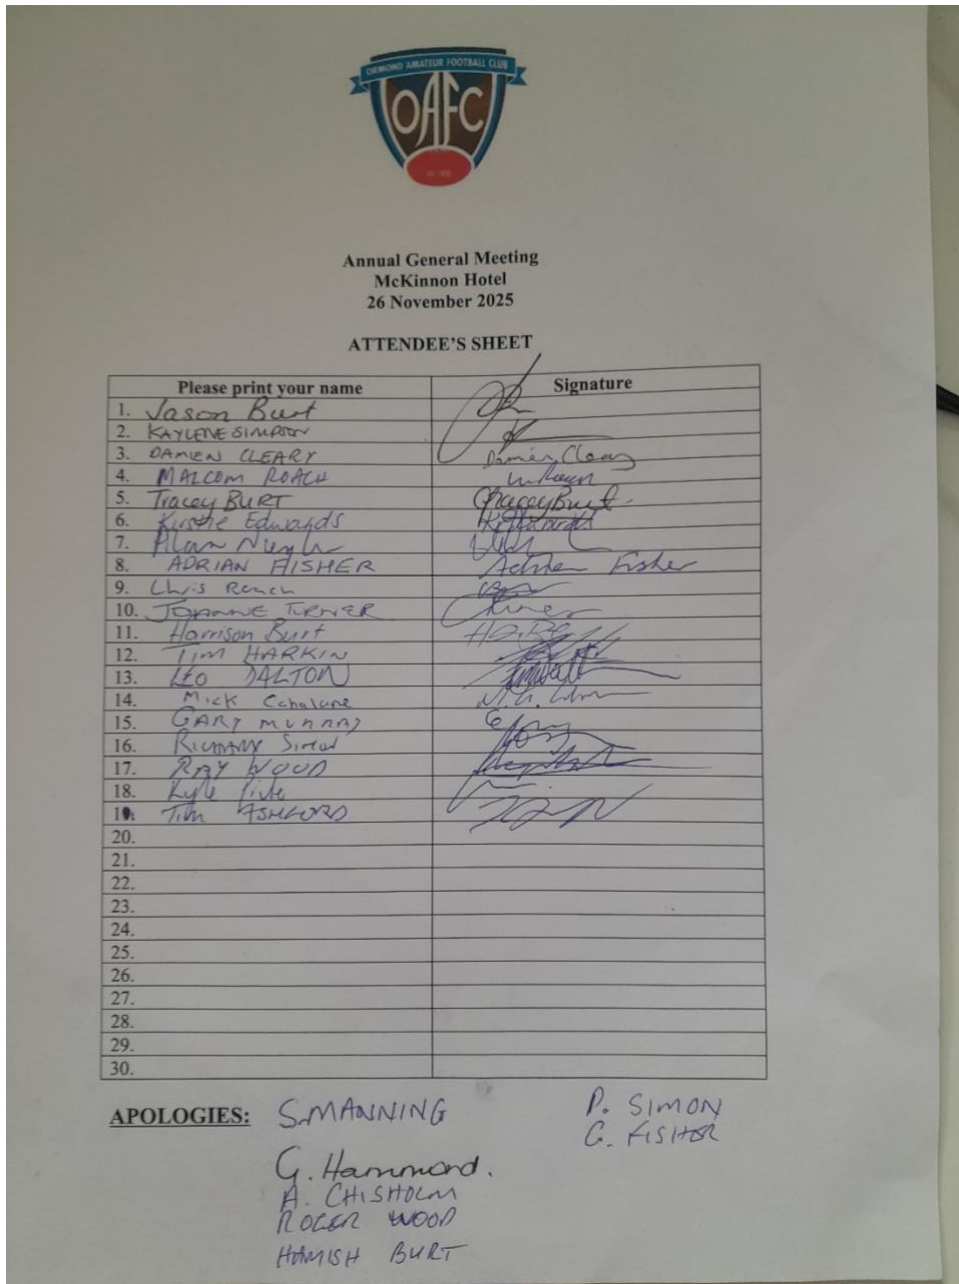 ORMOND AMATEUR FOOTBALL CLUB
OAFC
Annual General Meeting
McKinnon Hotel
26 November 2025
ATTENDEE'S SHEET
Please print your name Signature
1. Jason Burt
2. KAYLENE SIMPSON
3. DAMIEN CLEARY Damien Cleary
4. MALCOM ROACH
5. Tracey BURT Tracey Burt
6. Kirstie Edwards
7. Alan
8. ADRIAN FISHER Adrian Fisher
9. Chris Roach
10. JOHANNE TURNER
11. Harrison Burt
12. TIM HARKIN
13. LEO DALTON
14. Mick Cahalane
15. GARY MURRAY
16. Simon
17. RAY WOOD
18. Kyle
19. Tim ASHFORD
20.
21.
22.
23.
24.
25.
26.
27.
28.
29.
30.
APOLOGIES: S. MANNING P. SIMON
G. FISHER
G. Hammond.
A. CHISHOLM
ROGER WOOD
HAMISH BURT